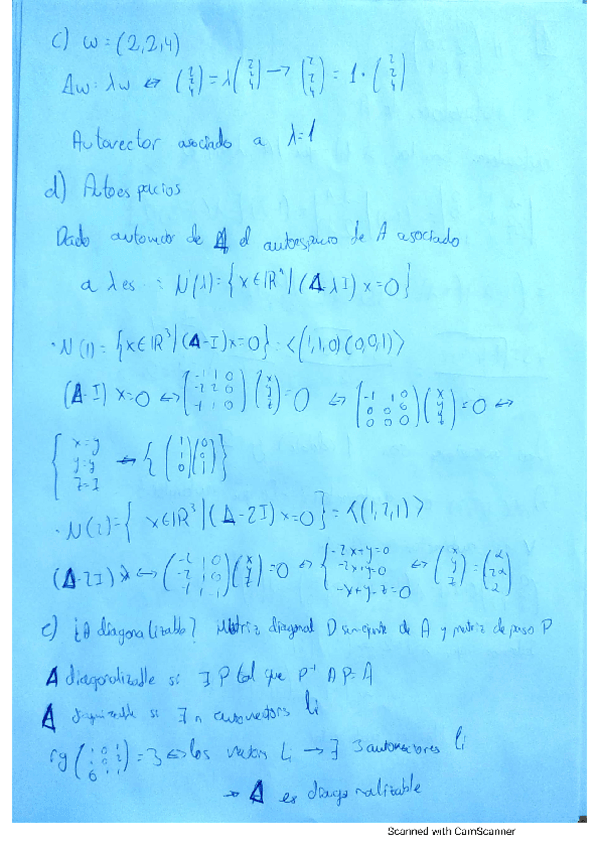 c) w = (2,2,4)
Aw = λw ⇔ (2 2 4) = λ(2 2 4) → (2 2 4) = 1 · (2 2 4)
Autovector asociado a λ=1
d) Autoespacios
Dado autovalor de A el autoespacio de A asociado
a λ es : N(λ) = { x ∈ ℝⁿ | (A-λI) x = 0 }
· N(1) = { x ∈ ℝ³ | (A-I) x = 0 } = <(1,1,0)(0,0,1)>
(A-I) x = 0 ⇔ (-1 1 0; -2 2 0; -1 1 0) (x y z) = 0 ⇔ (-1 1 0; 0 0 0; 0 0 0) (x y z) = 0 ⇔
{ x=y y=y z=z → { (1 1 0) (0 0 1) }
· N(2) = { x ∈ ℝ³ | (A-2I) x = 0 } = <(1,2,1)>
(A-2I) x ⇔ (-2 1 0; -2 1 0; -1 1 -1) (x y z) = 0 ⇔ { -2x+y=0 -2x+y=0 -x+y-z=0 ⇔ (x y z) = (α 2α
e) ¿A diagonalizable? Matriz diagonal D semejante de A y matriz de paso P
A diagonalizable si ∃ P tal que P⁻¹ A P = A
A si ∃ n autovectores li
rg = 3 ⇔ los li → ∃ 3 autovectores li
→ A es diagonalizable
Scanned with CamScanner